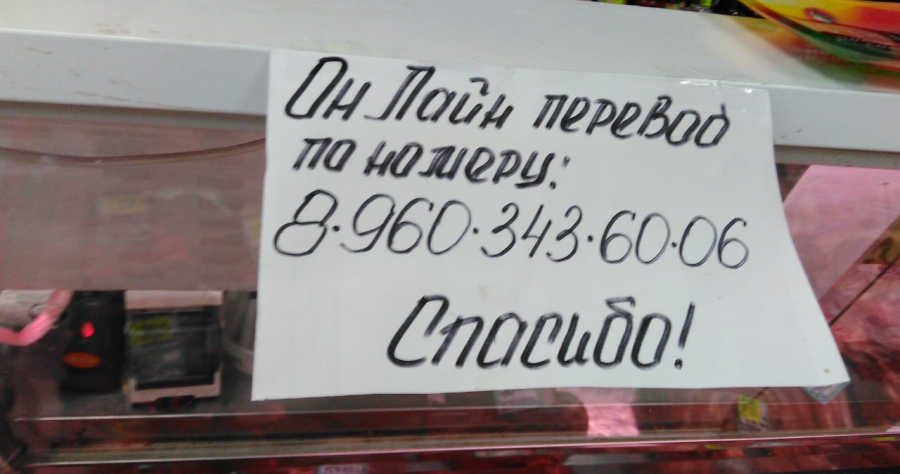 Он Лайн перевод
по номеру:
8·960·343·60·06
Спасибо!